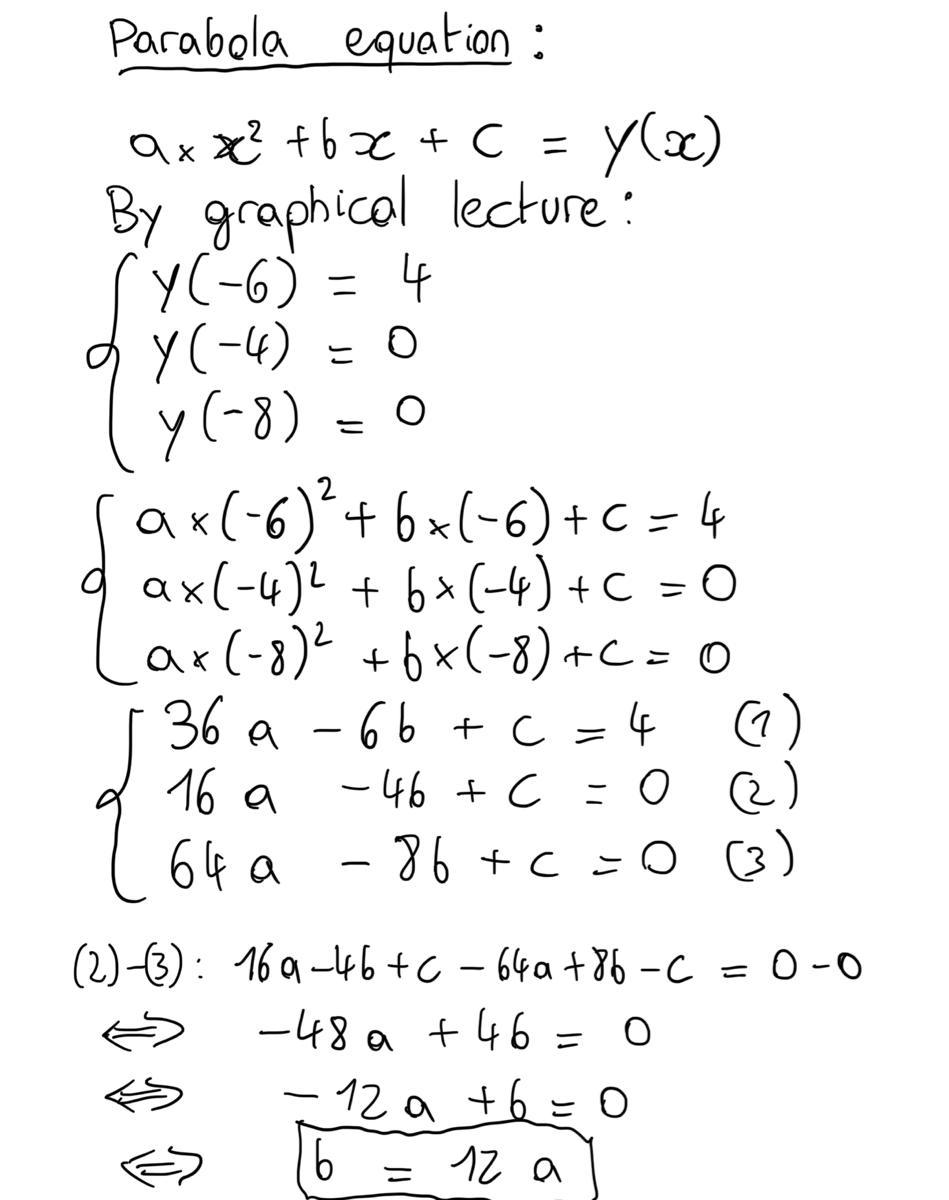 Parabola equation :
a × x² + bx + c = y(x)
By graphical lecture :
y(-6) = 4
y(-4) = 0
y(-8) = 0
a × (-6)² + b × (-6) + c = 4
a × (-4)² + b × (-4) + c = 0
a × (-8)² + b × (-8) + c = 0
36 a - 6b + c = 4 (1)
16 a - 4b + c = 0 (2)
64 a - 8b + c = 0 (3)
(2)-(3) : 16a - 4b + c - 64a + 8b - c = 0 - 0
⇔ -48 a + 4b = 0
⇔ - 12 a + b = 0
⇔ b = 12 a